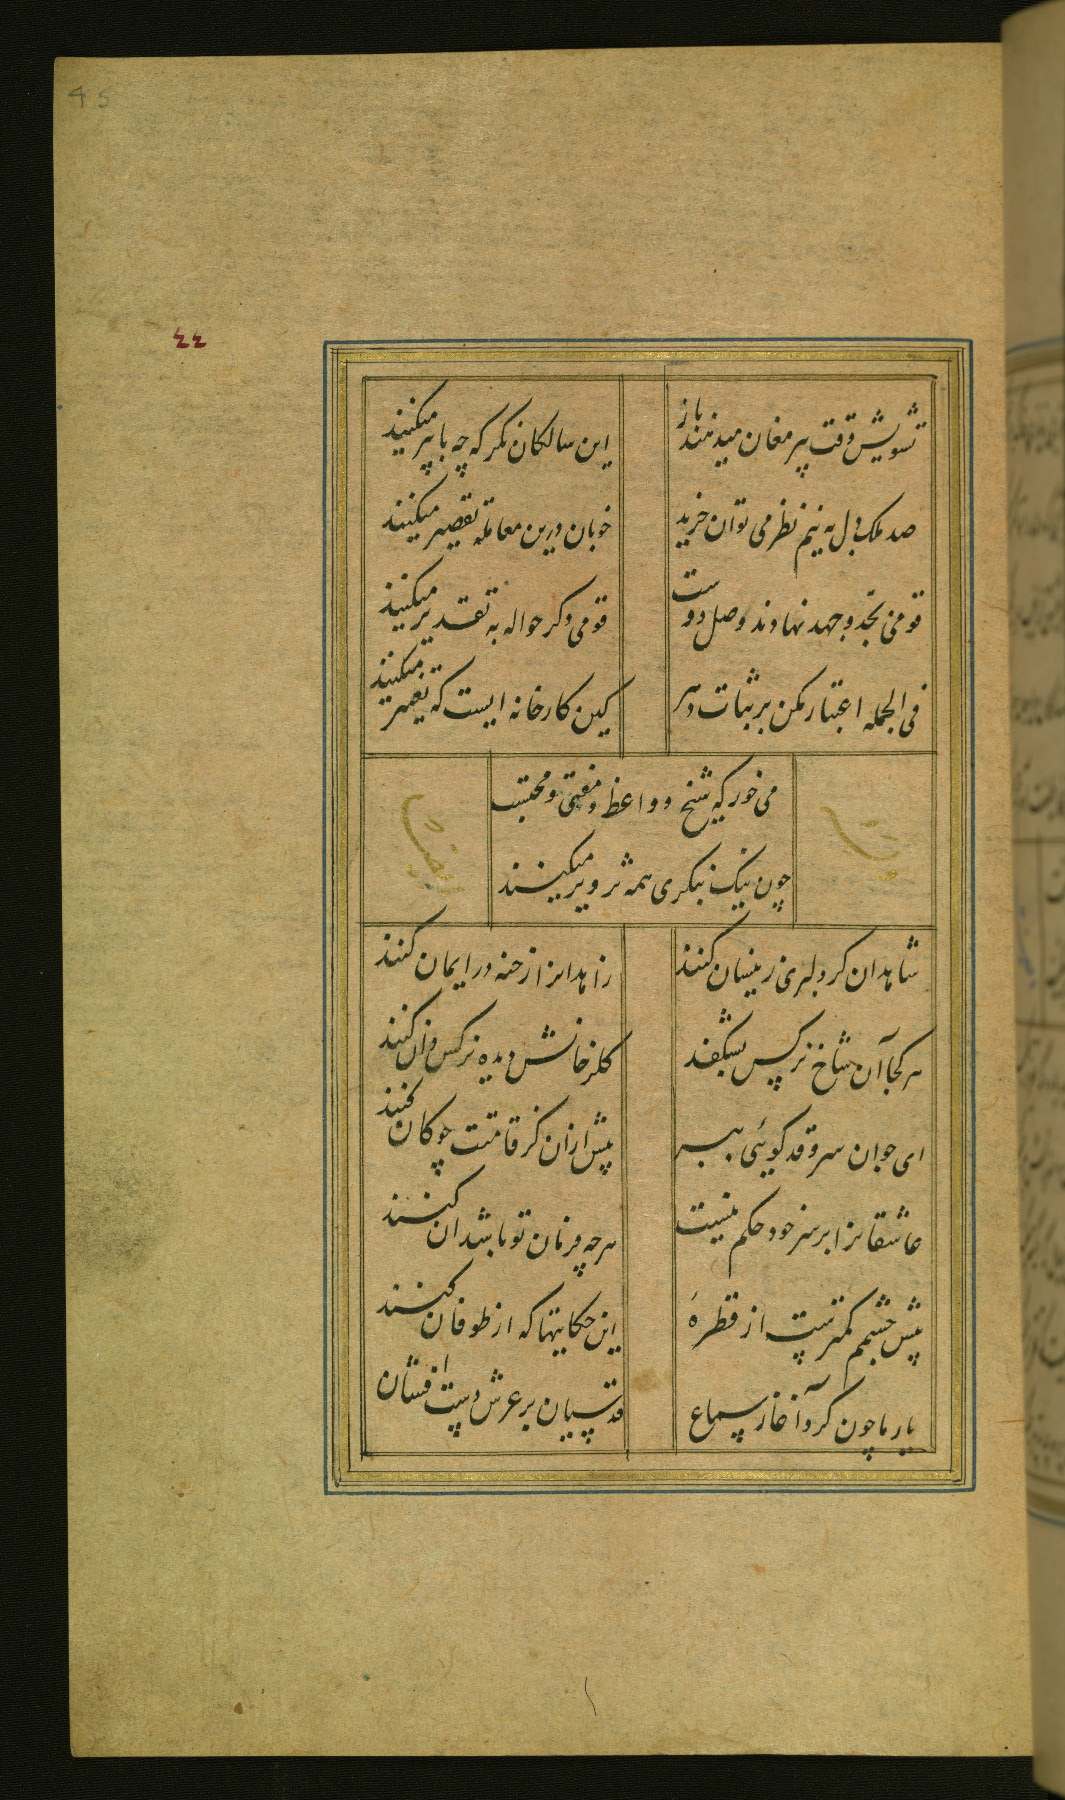 45
٤٤
تشویش وقت پیر مغان میدهند باز
این سالکان نکر که چه با پیر میکنند
صد ملک دل به نیم نظر می توان خرید
خوبان درین معامله تقصیر میکنند
قومی بجد و جهد نهادند وصل دوست
قومی دکر حواله به تقدیر میکنند
فی الجمله اعتبار مکن بر ثبات دهر
کین کارخانه ایست که تغییر میکنند
می خور که شیخ و واعظ و مفتی و محتسب
چون نیک بنکری همه تزویر میکنند
شاهدان کر دلبری زینسان کنند
زاهدانرا رخنه در ایمان کنند
هر کجا آن شاخ نرکس بشکفد
کلرخانش دیده نرکس دان کنند
ای جوان سرو قد کوئی ببر
پیش ازان کز قامتت چوکان کنند
عاشقانرا بر سر خود حکم نیست
هرچه فرمان تو باشد ان کنند
پیش چشمم کمترست از قطرهٔ
این حکایتها که از طوفان کنند
یار ما چون کرد آغاز سماع
قدسیان بر عرش دست افشان